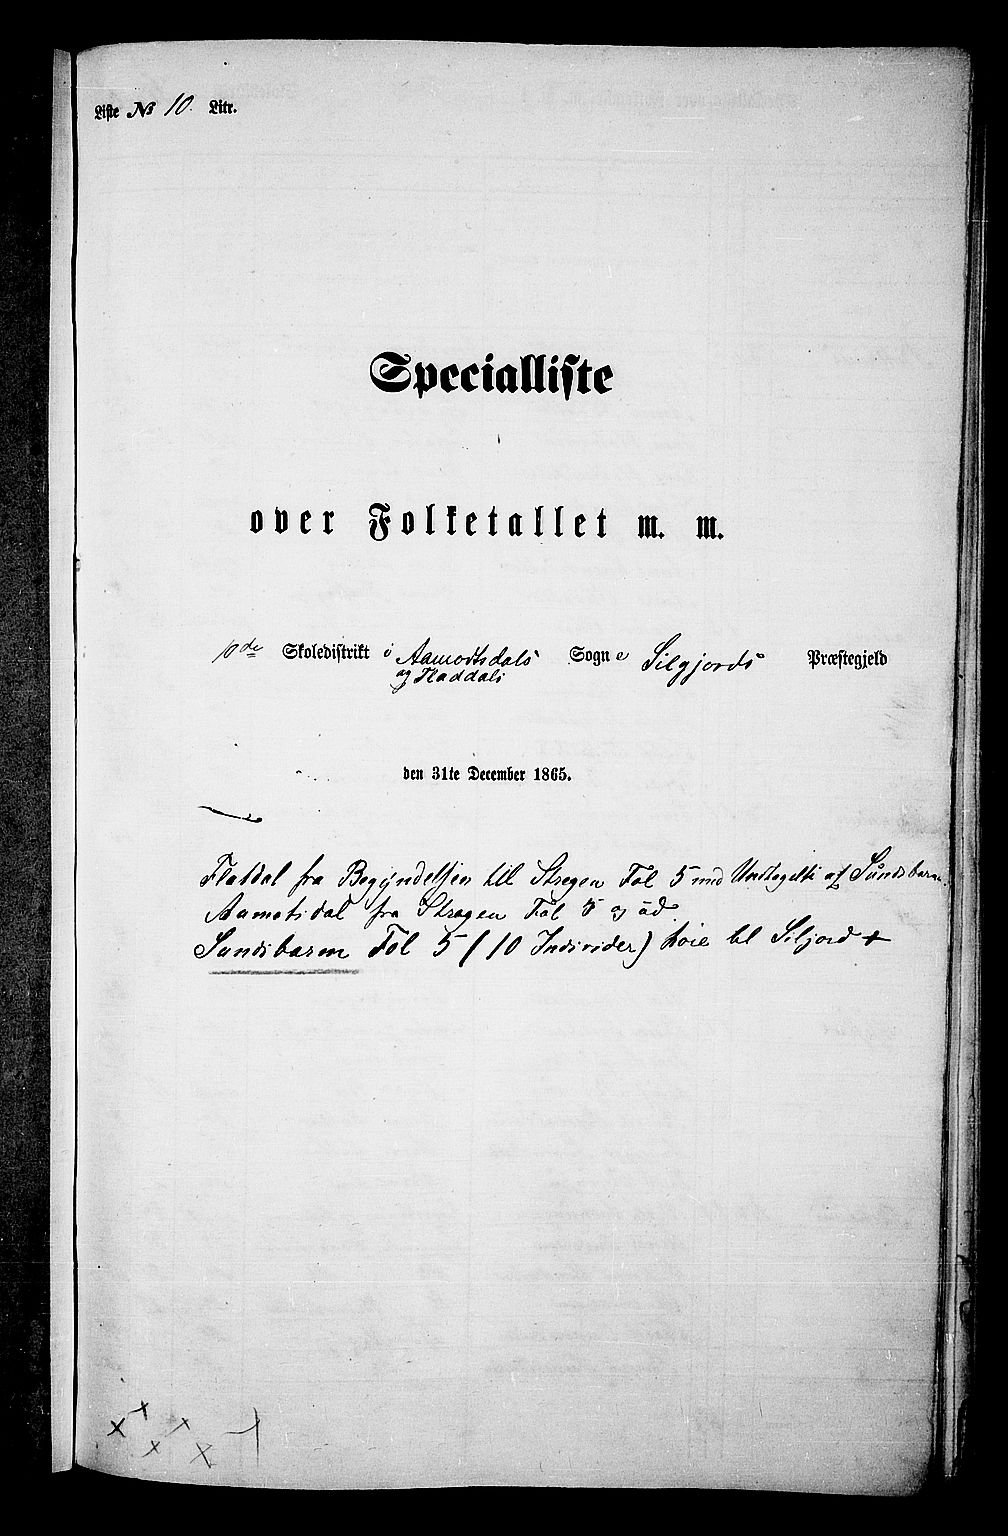 Liste № 10. Litr.
Specialliste
over Folketallet m. m.
10de Skoledistrikt i Aamodtsdals Sogne Silgjords Præstegjeld
og Fladdals
den 31te December 1865.
Flatdal fra Begyndelsen til Stregen Fol 5 med Undtagelse af Sundsbarm.
Aamotsdal fra Stregen Fol 5 og ud
Sundsbarm Fol 5 (10 Individer) høie til Siljord +